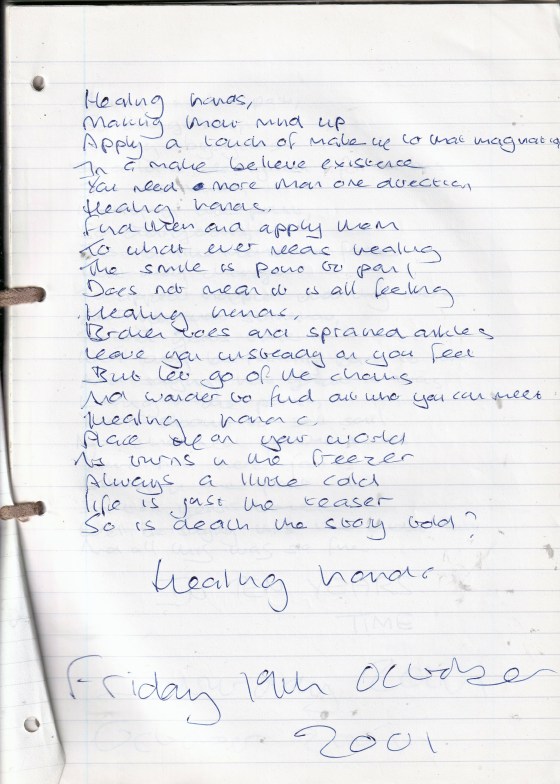 Healing hands,
Making your mind up
Apply a touch of make up to that imagination
In a make believe existence
You need more than one direction
Healing hands,
Find them and apply them
To what ever needs healing
The smile is part
Does not mean it is all feeling
Healing hands,
Broken toes and sprained ankles
Leave you unsteady on your feet
But let go of the chains
And wander to find out who you can meet
Healing hands.
Place on your world
As turns in the freezer
Always a little cold
life is just the teaser
So is death the story told?
Healing hands
Friday 19th October
2001